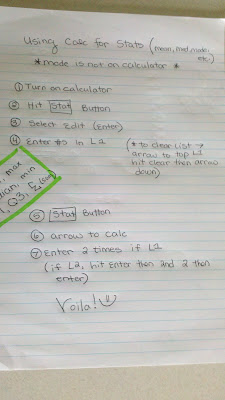 Using Calc for Stats (mean, med, mode, etc.)
* mode is not on calculator *
① Turn on calculator
② Hit Stat Button
③ Select Edit (Enter)
④ Enter #s in L1
(* to clear list →
arrow to top L1
hit clear then arrow
down)
max
min
Q3, Σ (sum)
⑤ Stat Button
⑥ arrow to calc
⑦ Enter 2 times if L1
(if L2, hit Enter then 2nd 2 then
enter)
Voila! ☺